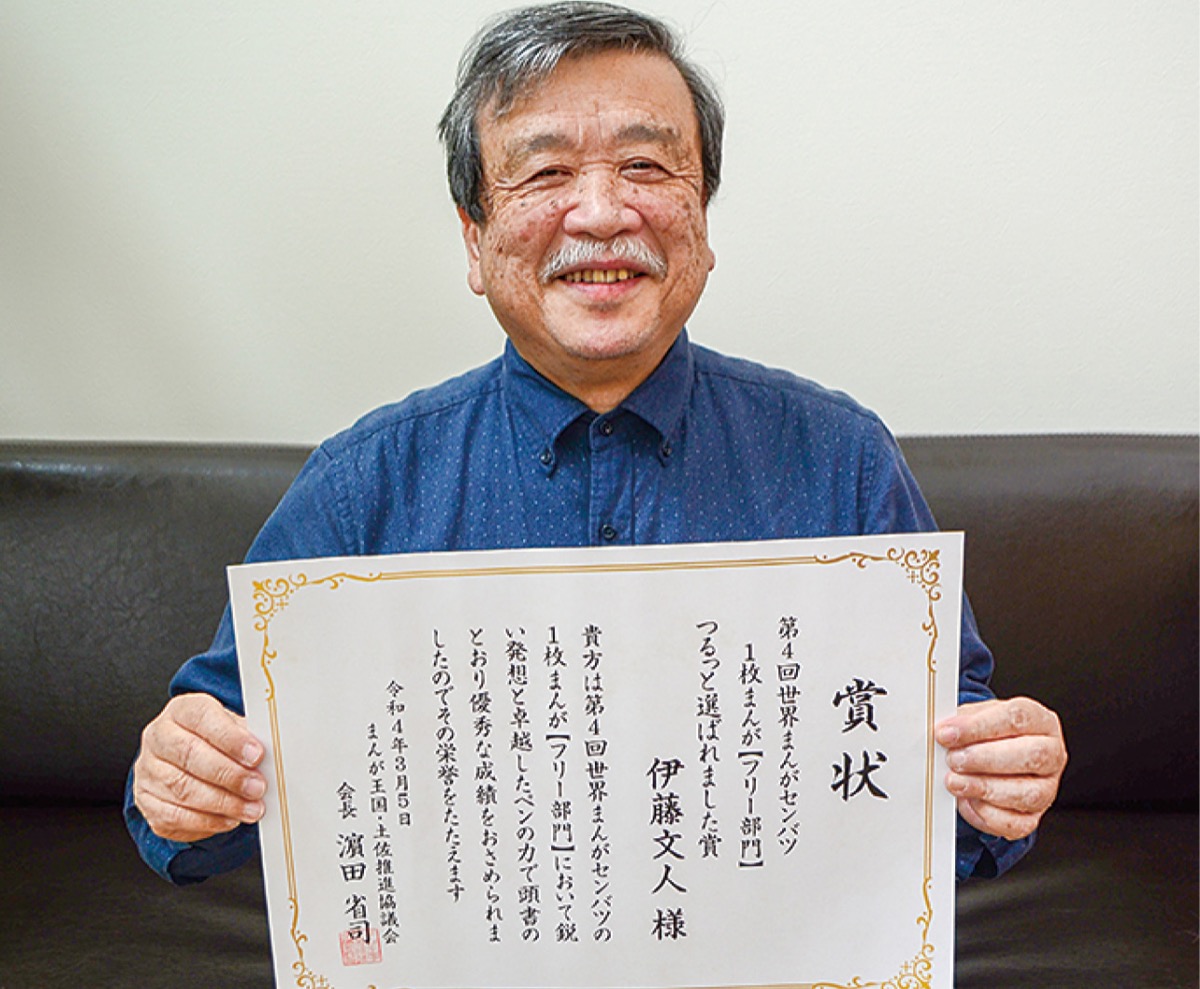 賞状
第4回世界まんがセンバツ
1枚まんが【フリー部門】
つるっと選ばれました賞
伊藤文人 様
貴方は第4回世界まんがセンバツの
1枚まんが【フリー部門】において鋭
い発想と卓越したペンの力で頭書の
とおり優秀な成績をおさめられま
したのでその栄誉をたたえます
令和4年3月5日
まんが王国・土佐推進協議会
会長 濵田 省司